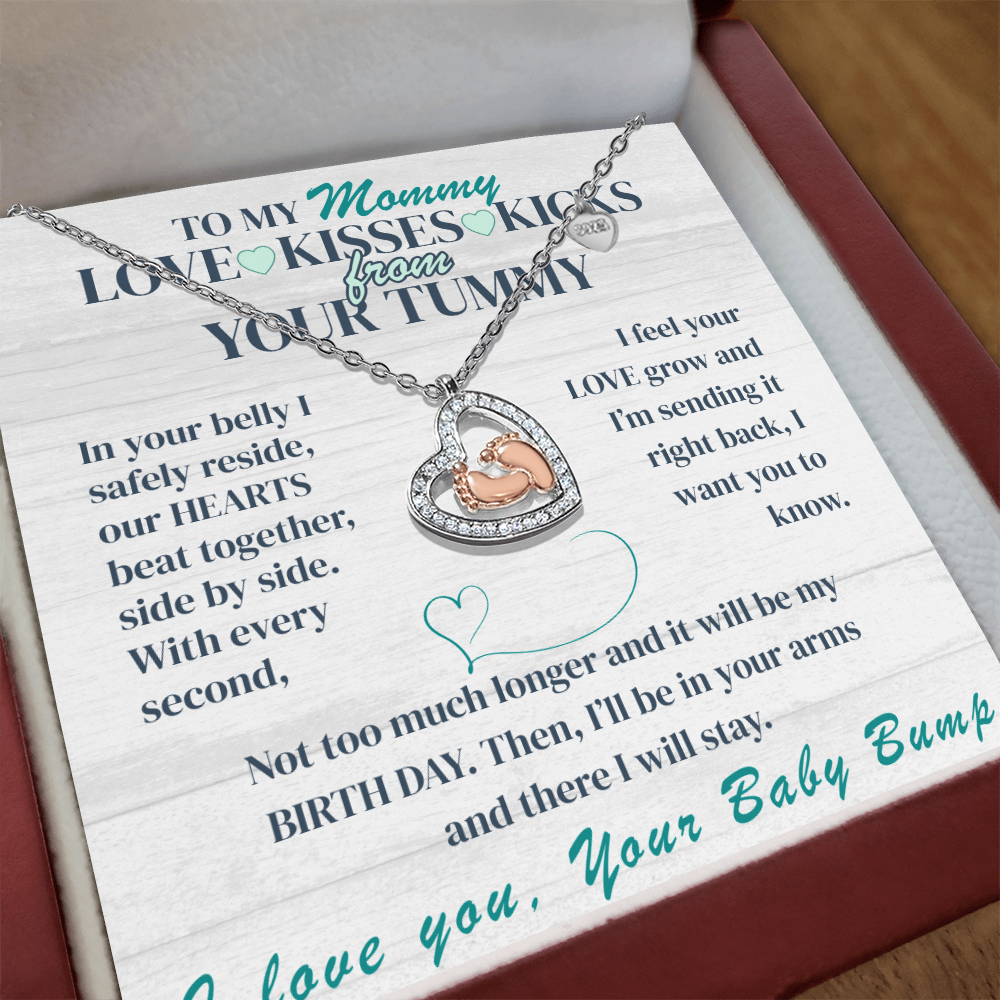 TO MY Mommy
LOVE KISSES KICKS
from
YOUR TUMMY
In your belly I
safely reside,
our HEARTS
beat together,
side by side.
With every
second,
I feel your
LOVE grow and
I'm sending it
right back, I
want you to
know.
Not too much longer and it will be my
BIRTH DAY. Then, I'll be in your arms
and there I will stay.
I love you, Your Baby Bump